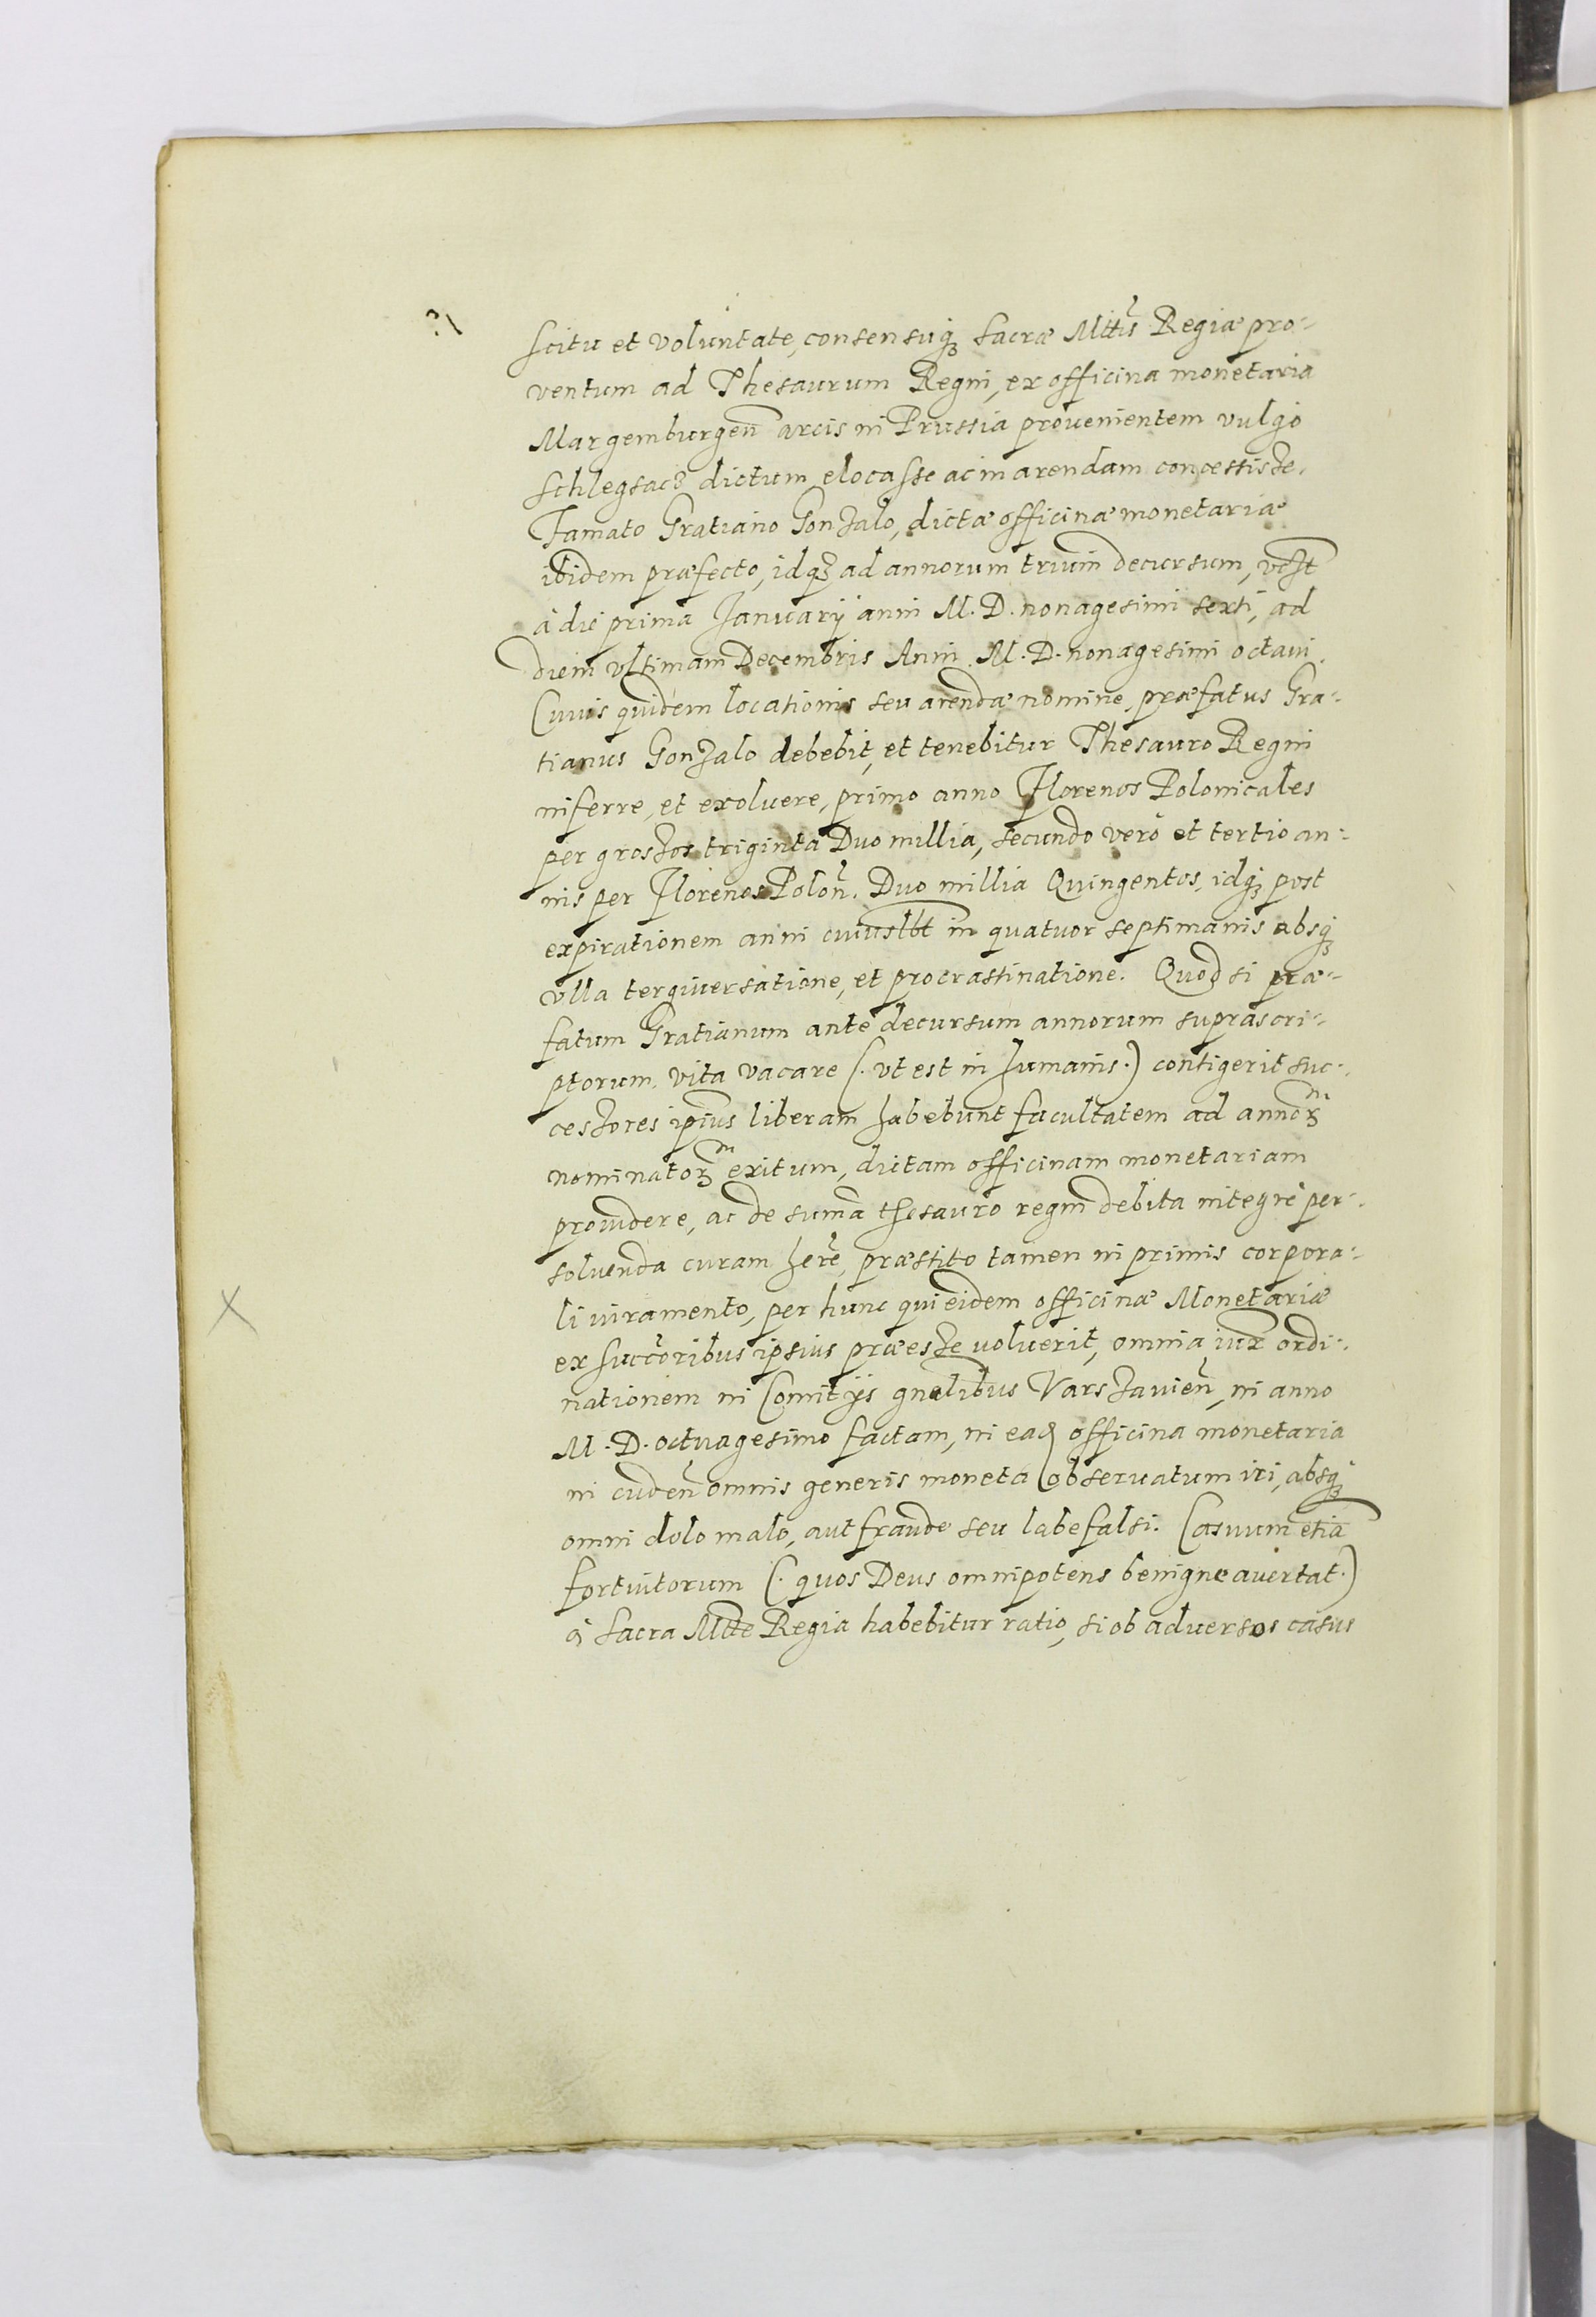 scitu et voluntate, consensuq₃ Sacræ Mttis Regiæ pro-
ventum ad Thesaurum Regni, ex officina monetaria
Margemburgen̄ arcis in Prussia prouenientem vulgo
Schlegsacz dictum elocasse ac in arendam concessisse,
Famato Gratiano Gonzalo, dictæ officinæ monetariæ
ibidem præfecto, idq₃ ad annorum trium decursum,
à die prima Januarij anni M. D. nonagesimi sexti, ad
diem vltimam Decembris Anni M. D. nonagesimi octaui.
Cuius quidem locationis seu arendæ nomine, præfatus Gra-
tianus Gonzalo debebit, et tenebitur Thesauro Regni
inferre, et exoluere, primo anno Florenos Polonicales
per grossos triginta Duo millia, secundo verò et tertio an-
nis per Florenos Polon̄. Duo millia Quingentos, idq₃ post
expirationem anni cuiuslbt in quatuor septimanis absq₃
vlla tergiuersatione, et procrastinatione. Quod si præ-
fatum Gratianum ante decursum annorum suprascri-
ptorum, vita vacare (. vt est in humanis .) contigerit suc-
cessores ipius liberam habebunt facultatem ad annoꝝ
nominatoꝝ exitum, dictam officinam monetariam
prouidere, ac de sum̄a thesauro regni debita integrè per-
soluenda curam her̄e, præstito tamen in primis corpora-
li iuramento, per hunc qui eidem officinæ Monetariæ
ex succoribus ipsius præesse uoluerit, omnia iux̄ ordi-
nationem in Comitijs gnalibus Varssauien̄, in anno
M. D. octuagesimo factam, in ead officina monetaria
in cuden̄ omnis generis moneta obseruatum iri, absq₃
omni dolo malo, aut fraude seu labe falsi. Casuum etiā
fortuitorum (. quos Deus omnipotens benigne auertat .)
à Sacra Mtte Regia habebitur ratio, si ob aduersos casus